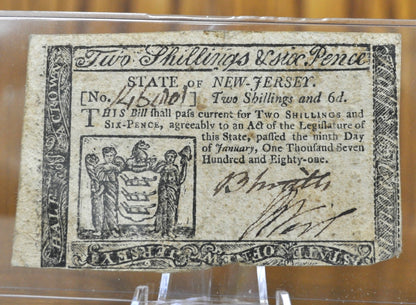 Two Shillings & six Pence
STATE OF NEW-JERSEY.
[No. ] Two Shillings and 6d.
THIS Bill shall pass current for TWO SHILLINGS and
SIX-PENCE, agreeably to an Act of the Legislature of
this State, passed the ninth Day
of January, One Thousand Seven
Hundred and Eighty-one.
HALF A CROWN
STATE OF N. JERSEY